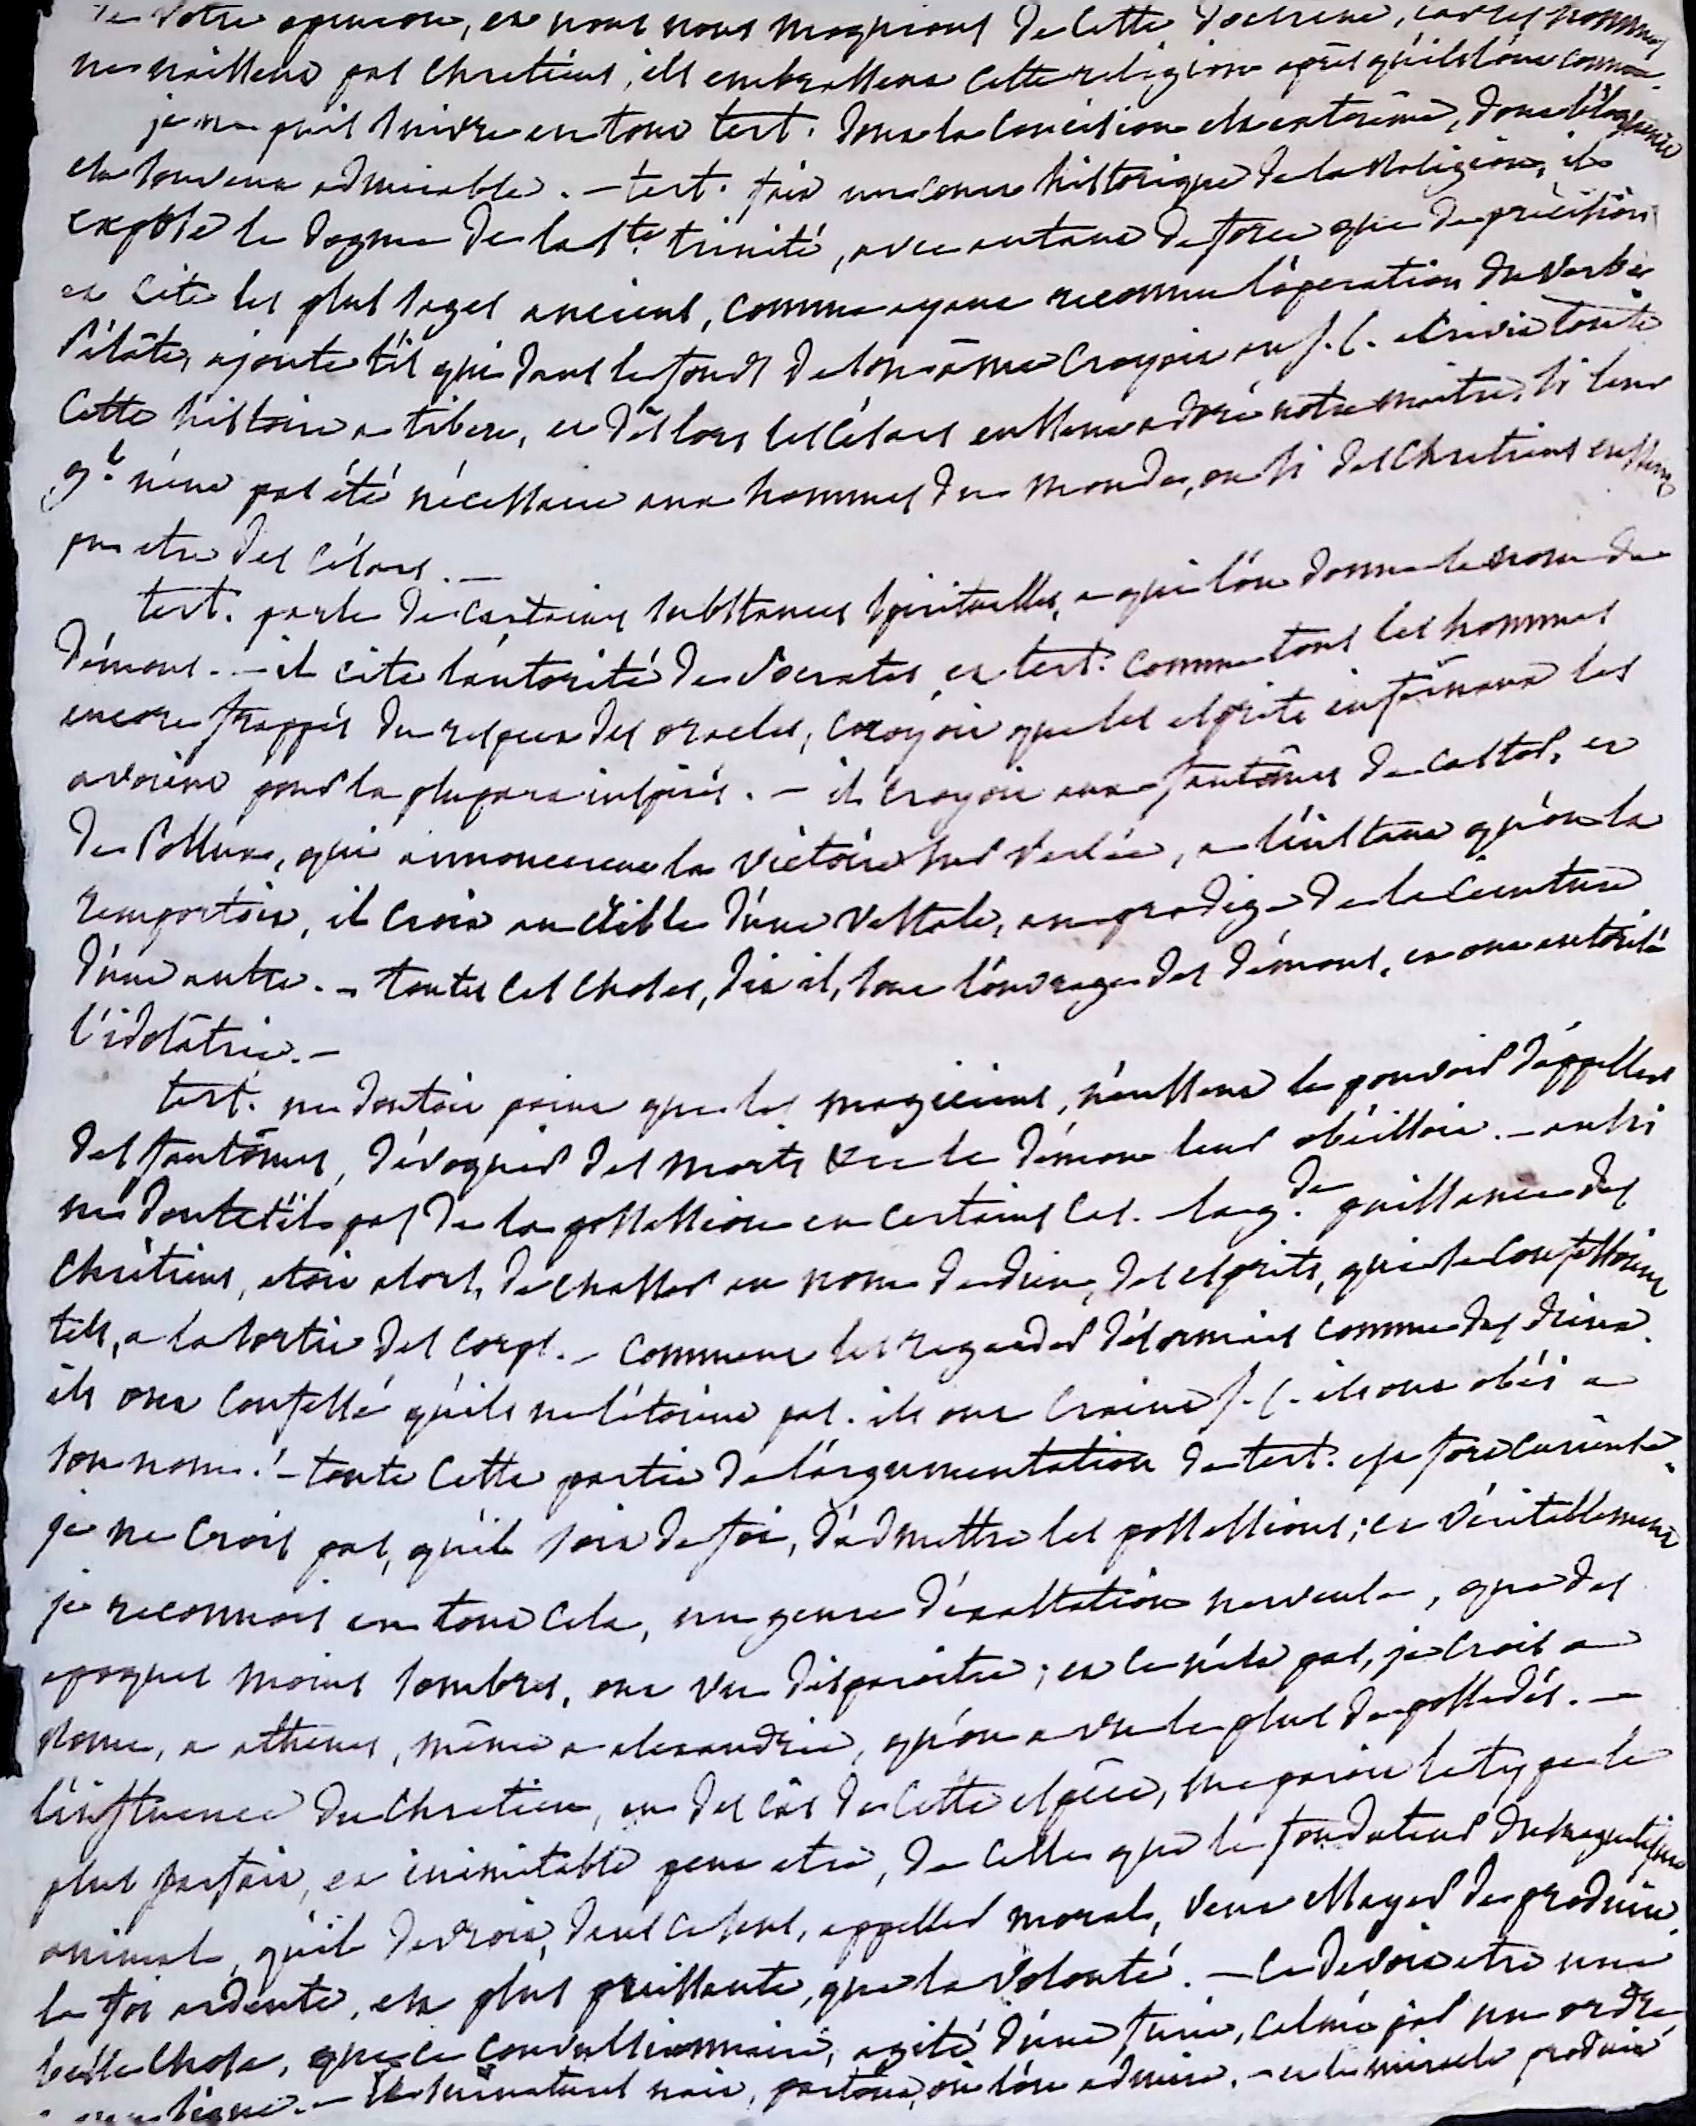 de votre opinion, et nous nous moquions de cette doctrine, car les hommes
ne naissent pas chretiens, ils embrassent cette religion après qu'ils l'ont connue.
je ne puis suivre en tout tert. dont la concision est extrême, dont l'éloquence
est souvent admirable. – tert. fait un cours historique de la Religion, il
expose le dogme de la Ste. trinité, avec autant de force que de précision
et cite les plus sages anciens, comme ayant reconnu l'opération du Verbe.
Pilate, ajoute t'il qui dans le fond de son âme croyoit en J. C. écrivit toute
cette histoire a tibere, et dès lors les Césars eussent adoré notre maitre, si leur
gt. n'eut pas été nécessaire aux hommes du monde, ou si des Chretiens eussent
pu etre des Césars. –
tert. parle de certaines substances spirituelles, a qui l'on donne le nom de
démons. – il cite l'autorité de Socrates, et tert. comme tous les hommes
encore frappés du respect des oracles, croyoit que les esprits infernaux les
avoient pour la plupart inspirés. – il croyoit aux fantômes de Castor, et
de Pollux, qui annoncerent la victoire sur Persée, a l'instant qu'on la
remportoit, il croit au crible d'une Vestale, au prodige de la ceinture
d'une autre. – toutes ces choses, dit il, sont l'ouvrage des démons, et ont autorisé
l'idolâtrie. –
tert. ne doutoit point que les magiciens, n'eussent le pouvoir d'appeller
des fantômes, d'évoquer des morts &c le démon leur obéissoit. – aussi
ne doute t'il pas de la possession en certains cas. – la gde. puissance des
Chrétiens, etoit alors, de chasser au nom de dieu, des esprits, qui se confessoient
tels, a la sortie des corps. – comment les regarder désormais comme des dieux.
ils ont confessé qu'ils ne l'étoient pas. ils ont craint J. C. ils ont obéi a
son nom ! – toute cette partie de l'argumentation de tert. est fort curieuse.
je ne crois pas, qu'il soit de foi, d'admettre les possessions ; et véritablement
je reconnois en tout cela, un genre d'exaltation nerveuse, que des
epoques moins sombres, ont vu disparoitre ; et ce n'est pas, je crois a
Rome, a athenes, même a alexandrie, qu'on a vu le plus de possedés. –
l'influence du Chretien, en des cas de cette espèce, me paroit le type le
plus parfait, et inimitable peut etre, de celle que le fondateur du magnetisme
animal, qu'il devroit, dans ce sens, appeller moral, veut essayer de produire.
la foi ardente, est plus puissante, que la volonté. – ce devoit etre une
belle chose, que ce convulsionnaire, agité d'une furie, calmé par un ordre
signe. – le surnaturel nait, partout, où l'on admire. – et le miracle produit